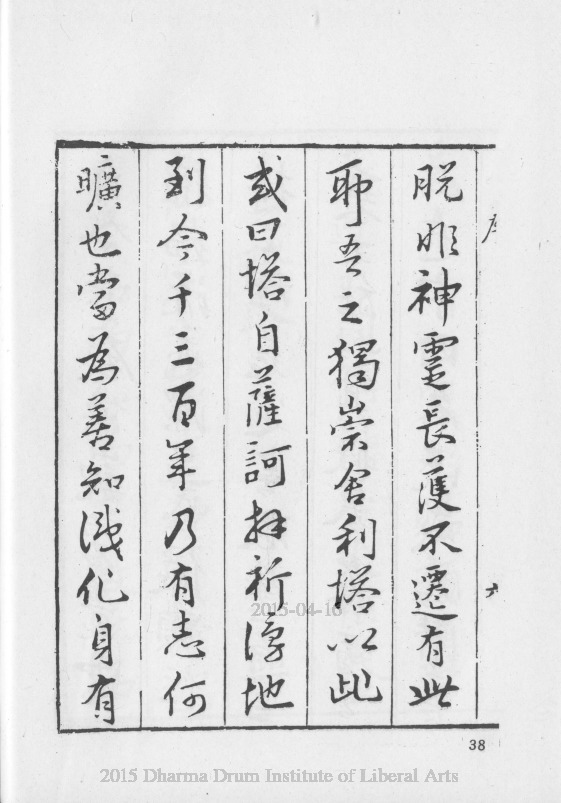 脫非神靈長護不遷有此
耶吾之獨崇舍利塔以此
或曰塔自薩訶拜祈得地
到今千三百年乃有志何
曠也當為善知識化身有
序
六
38
2015-04-16
2015 Dharma Drum Institute of Liberal Arts